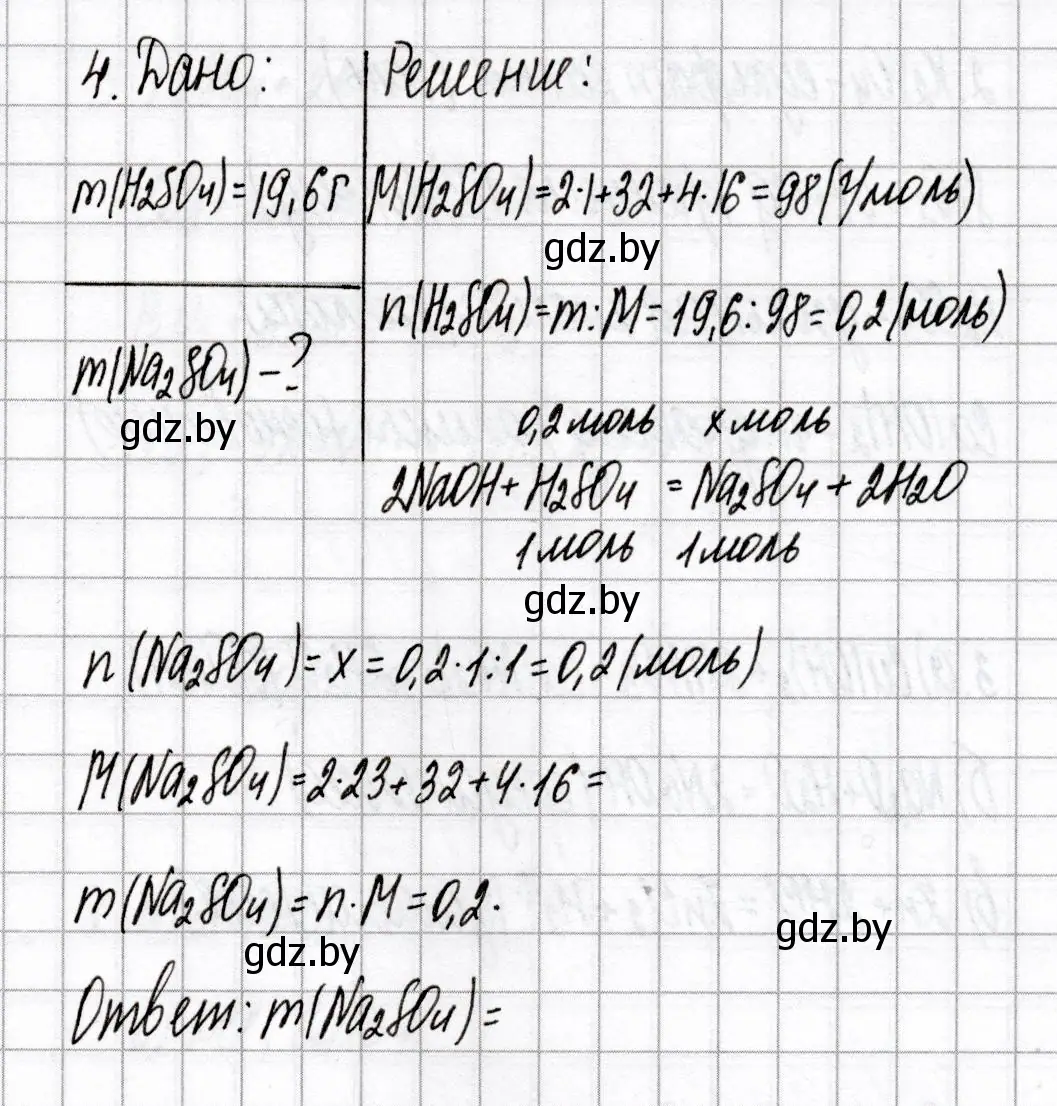 4. Дано:
Решение:
m(H2SO4)=19,6г
M(H2SO4)=2·1+32+4·16=98(г/моль)
gdz.by
n(H2SO4)=m:M=19,6:98=0,2(моль)
m(Na2SO4)-?
gdz.by
0,2моль хмоль
2NaOH+H2SO4=Na2SO4+2H2O
1моль 1моль
gdz.by
n(Na2SO4)=x=0,2·1:1=0,2(моль)
M(Na2SO4)=2·23+32+4·16=
m(Na2SO4)=n·M=0,2·
gdz.by
gdz.by
Ответ: m(Na2SO4)=